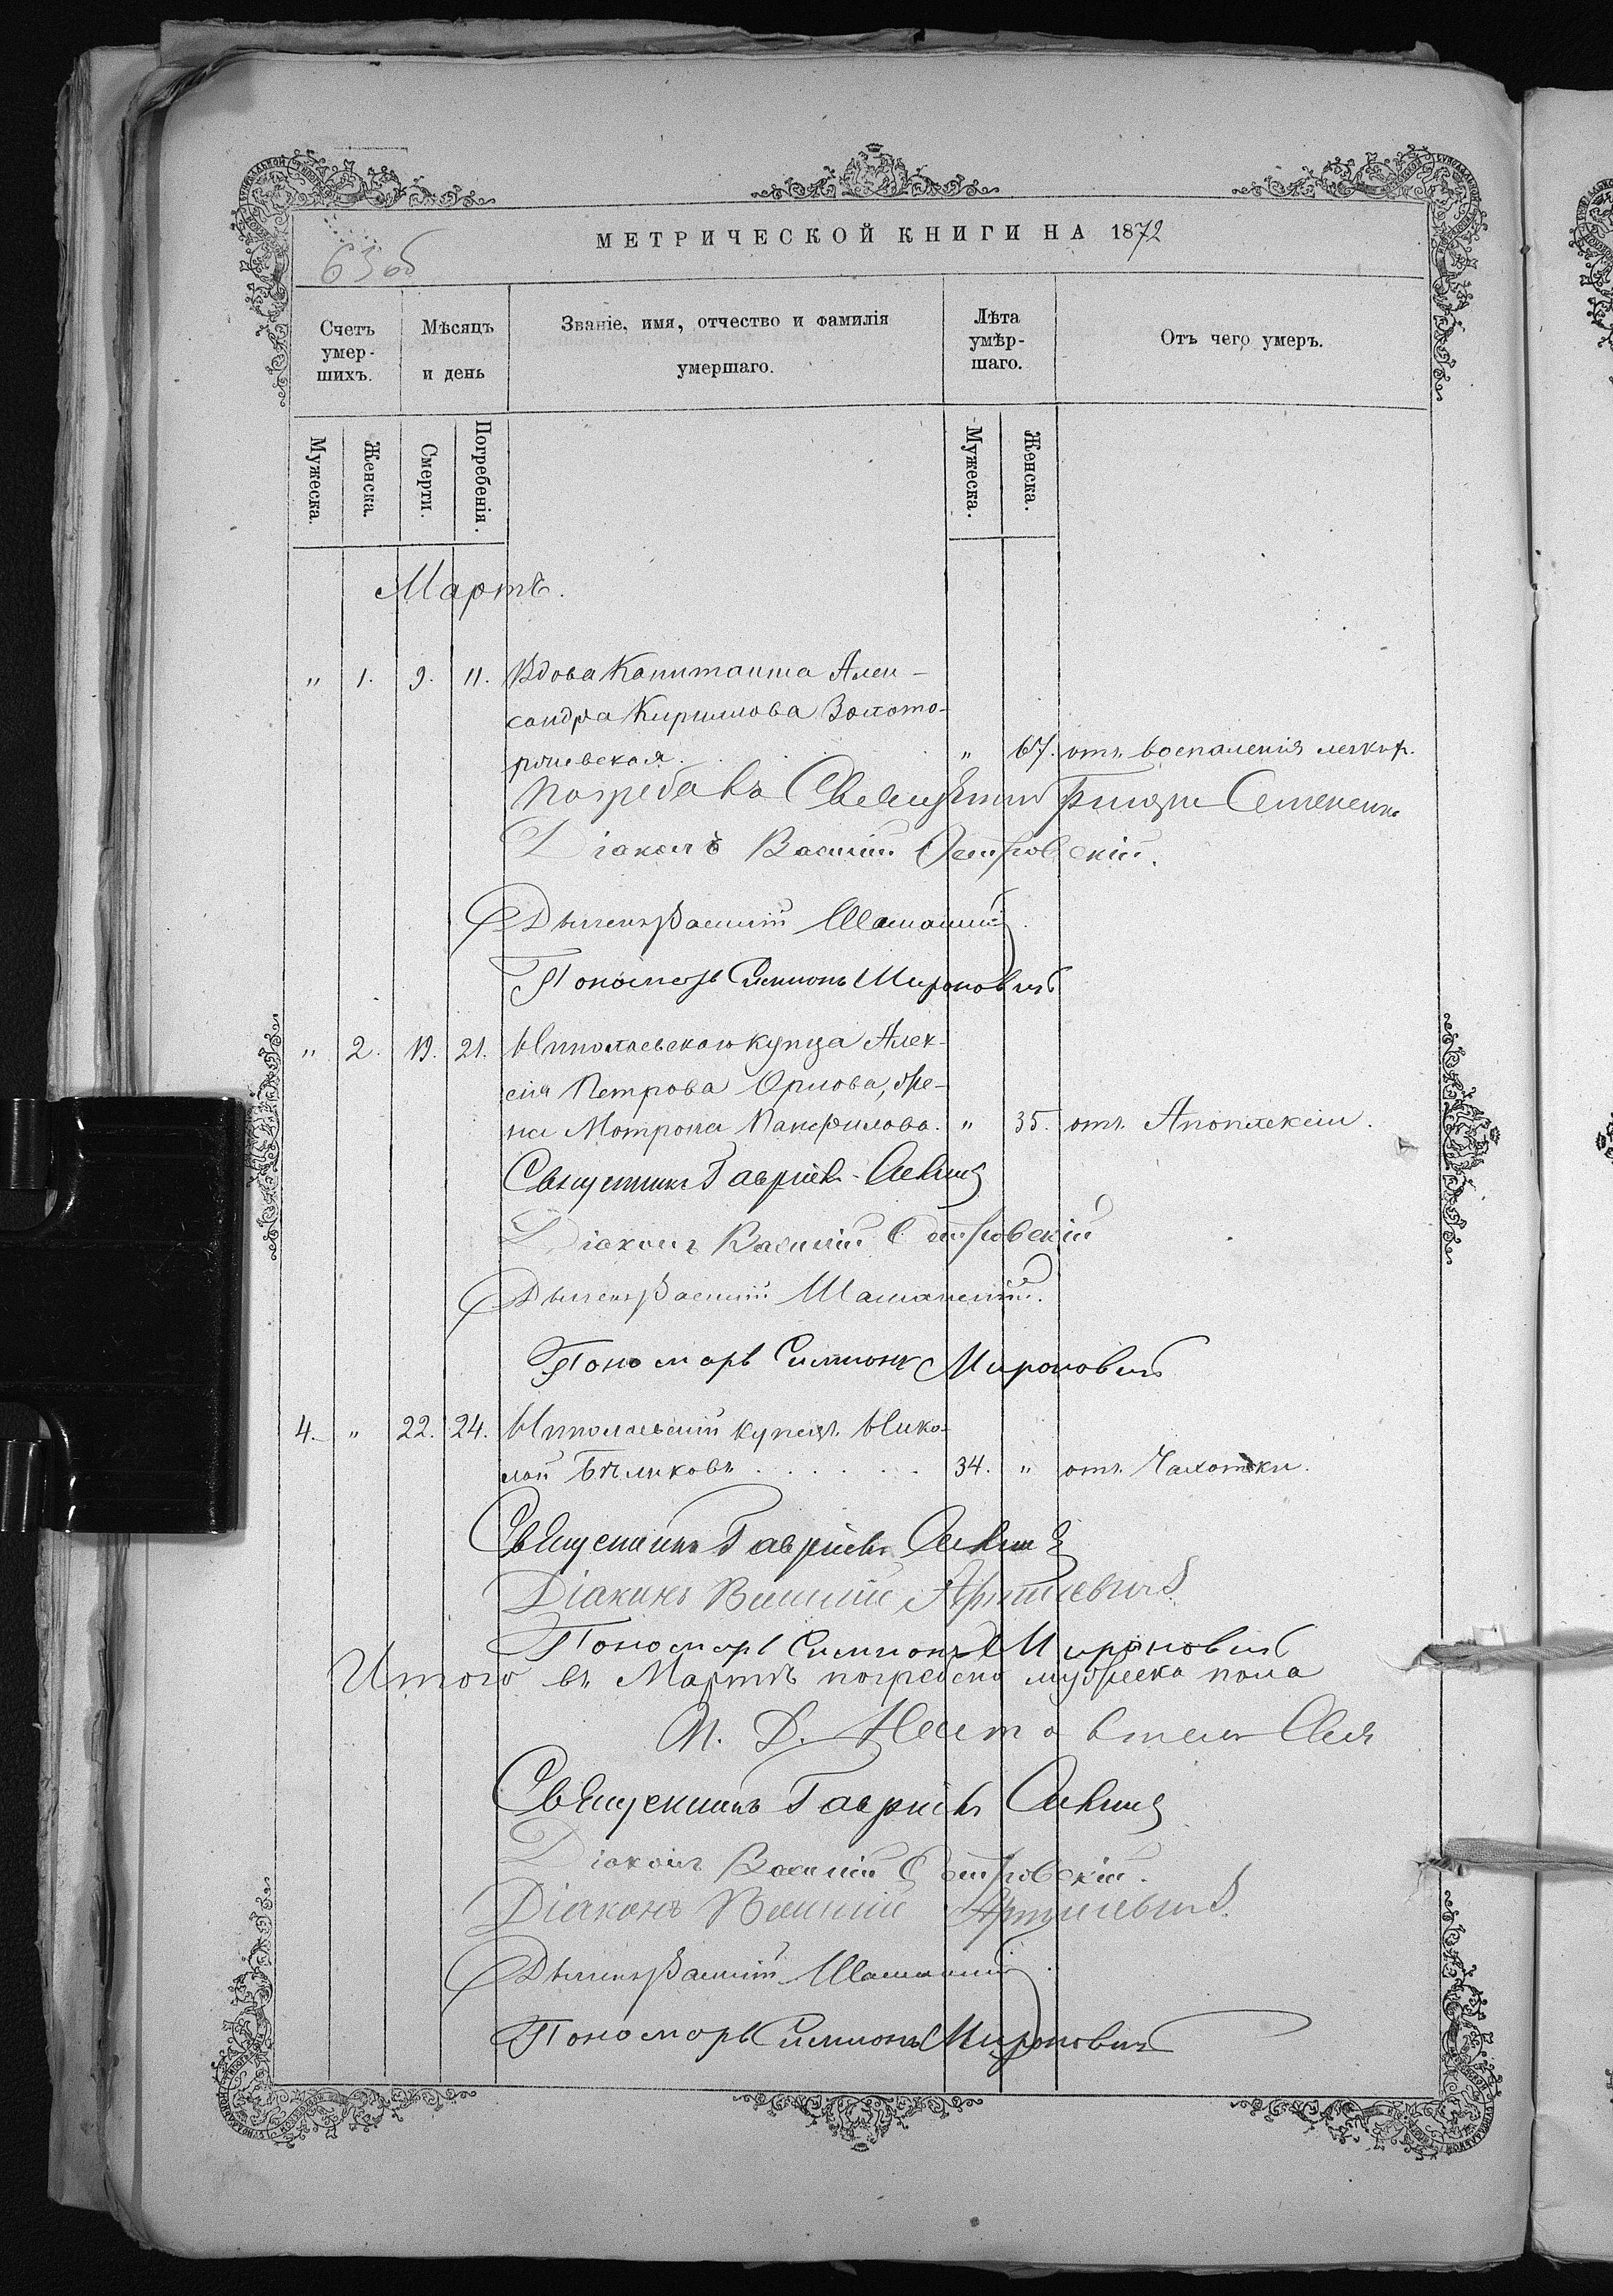 63 об
МЕТРИЧЕСКОЙ КНИГИ НА 1872
Счетъ умер-шихъ.
Мѣсяцъ и день
Званіе, имя, отчество и фамилія умершаго.
Лѣта умѣр-шаго.
Отъ чего умеръ.
Мужеска.
Женска.
Смерти.
Погребенія.
Мужеска.
Женска.
Мартъ.
" 1. 9. 11. Вдова Капитанша Алек-
сандра Кирилова Золото-
" 67. отъ воспаленія легкихъ.
Погребалъ Священникъ
Діаконъ Василій Островскій.
Дьячекъ Василій
Пономарь Симионъ Мироновичъ
" 2. 19. 21. Николаевского купца Алек-
сія Петрова Орлова, же-
на Мотрона Панфилова. " 35. отъ Апоплексіи.
Священникъ Гавріилъ
Діаконъ Василій Островскій
Дьячекъ Василій
Пономарь Симионъ Мироновичъ
4. " 22. 24. Николаевскій купецъ Нико-
лай Бѣликовъ . . . . . . 34. " отъ Чахотки.
Священникъ Гавріилъ
Діаконъ Василій
Пономарь Симионъ Мироновичъ
Итого въ Мартѣ погребено мужеска пола
Священникъ Гавріилъ
Діаконъ Василій Островскій.
Діаконъ Василій
Дьячекъ Василій
Пономарь Симионъ Мироновичъ